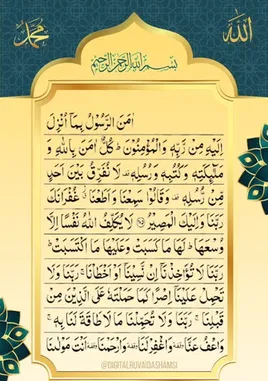 محمد
الله
بسم الله الرحمن الرحيم
اٰمَنَ الرَّسُوْلُ بِمَاۤ اُنْزِلَ
اِلَيْهِ مِنْ رَّبِّهٖ وَ الْمُؤْمِنُوْنَ ؕ كُلٌّ اٰمَنَ بِاللّٰهِ وَ
مَلٰٓئِكَتِهٖ وَ كُتُبِهٖ وَ رُسُلِهٖ ۫ لَا نُفَرِّقُ بَيْنَ اَحَدٍ
مِّنْ رُّسُلِهٖ ۫ وَ قَالُوْا سَمِعْنَا وَ اَطَعْنَا ٗۗ غُفْرَانَكَ
رَبَّنَا وَ اِلَيْكَ الْمَصِيْرُ ﴿۲۸۵﴾ لَا يُكَلِّفُ اللّٰهُ نَفْسًا اِلَّا
وُسْعَهَا ؕ لَهَا مَا كَسَبَتْ وَ عَلَيْهَا مَا اكْتَسَبَتْ ؕ
رَبَّنَا لَا تُؤَاخِذْنَاۤ اِنْ نَّسِيْنَاۤ اَوْ اَخْطَاْنَا ۚ رَبَّنَا وَ لَا
تَحْمِلْ عَلَيْنَاۤ اِصْرًا كَمَا حَمَلْتَهٗ عَلَى الَّذِيْنَ مِنْ
قَبْلِنَا ۚ رَبَّنَا وَ لَا تُحَمِّلْنَا مَا لَا طَاقَةَ لَنَا بِهٖ ۚ
وَ اعْفُ عَنَّا ٝ وَ اغْفِرْ لَنَا ٝ وَ ارْحَمْنَا ٝ اَنْتَ مَوْلٰىنَا
@DIGITALRUVAIDASHAMSI